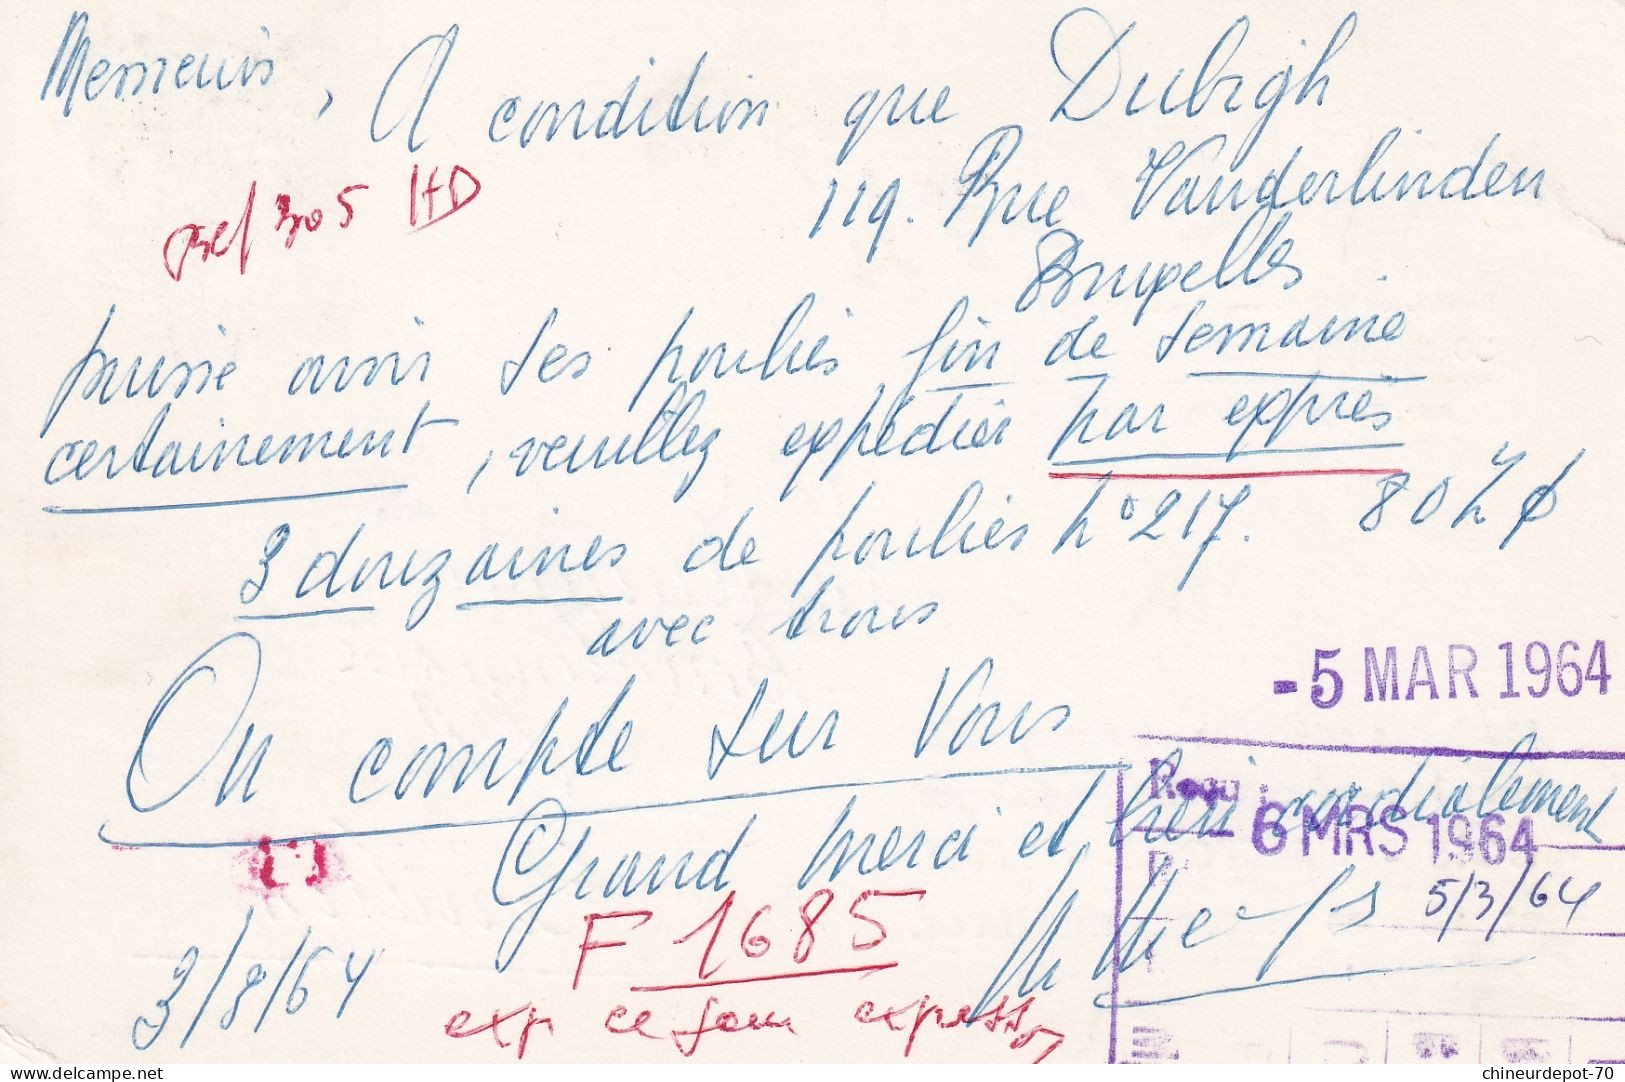 Messieurs, A condition que Dubigh
ref 305 HD
119. Rue Vanderlinden
Bruxelles.
puisse avoir ses poulies fin de semaine
certainement, veuillez expédier par exprès
3 douzaines de poulies n° 217. 80
avec trous
On compte sur Vous
-5 MAR 1964
Reçu :
6 MRS 1964
Grand merci et bien cordialement
5/3/64
F 1685
3/3/64
exp ce jour express
delcampe.net
chineurdepot-70